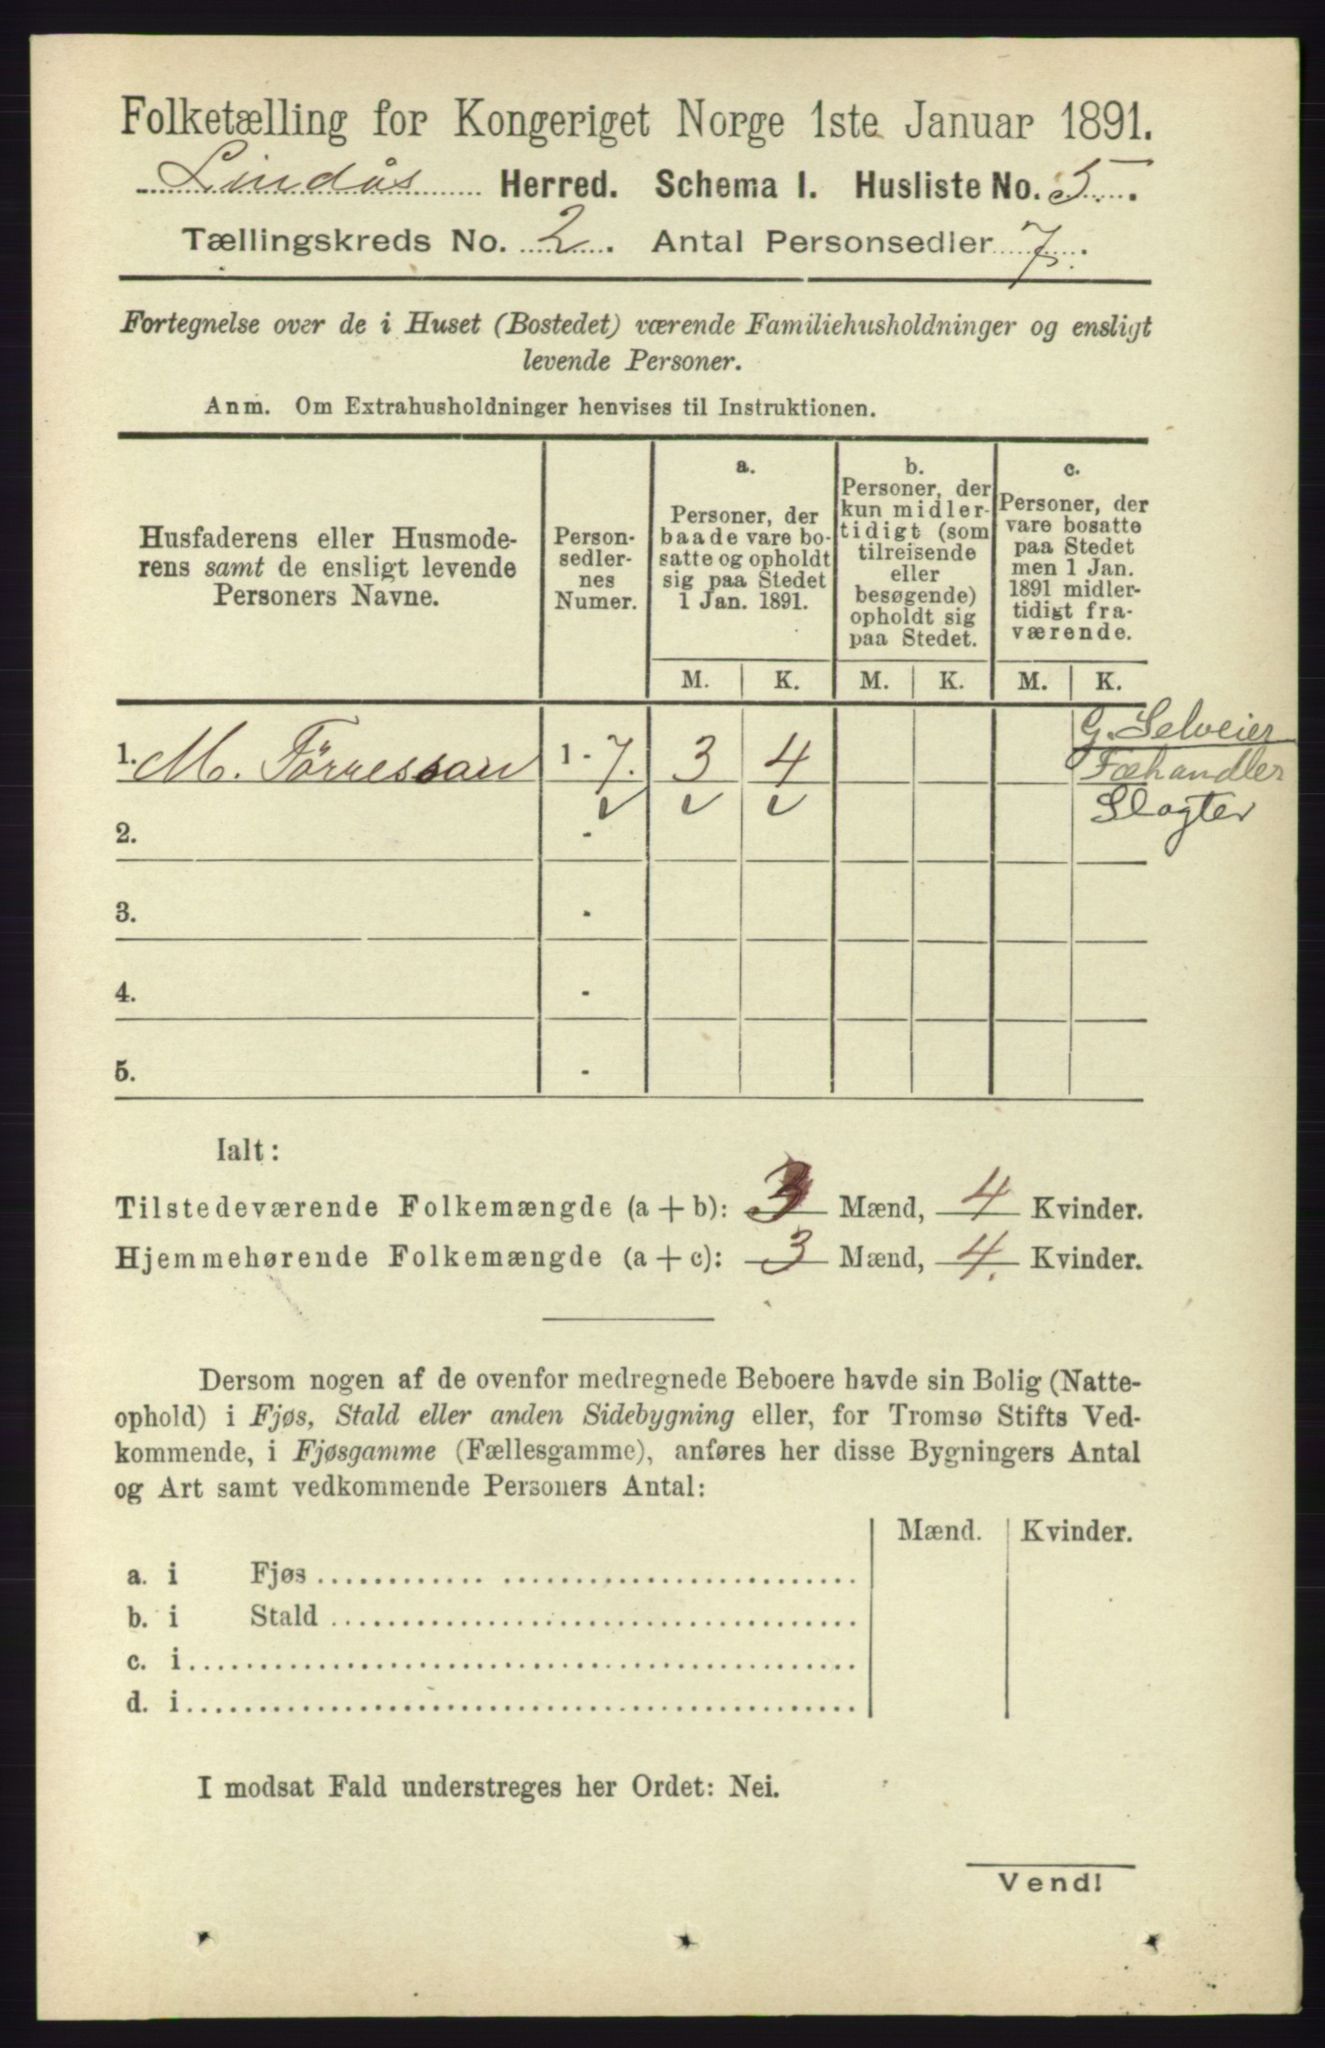 Folketælling for Kongeriget Norge 1ste Januar 1891.
Lindås Herred. Schema I. Husliste No. 5.
Tællingskreds No. 2. Antal Personsedler 7.
Fortegnelse over de i Huset (Bostedet) værende Familiehusholdninger og ensligt
levende Personer.
Anm. Om Extrahusholdninger henvises til Instruktionen.
Husfaderens eller Husmode-
rens samt de ensligt levende
Personers Navne.
Person-
sedler-
nes
Numer.
a.
Personer, der
baade vare bo-
satte og opholdt
sig paa Stedet
1 Jan. 1891.
b.
Personer, der
kun midler-
tidigt (som
tilreisende
eller
besøgende)
opholdt sig
paa Stedet.
c.
Personer, der
vare bosatte
paa Stedet
men 1 Jan.
1891 midler-
tidigt fra-
værende.
M. K. M. K. M. K.
G. Selveier
1. M. Törresson 1 - 7. 3 4 Fæhandler
Slagter
2. -
3. -
4. -
5. -
Ialt:
Tilstedeværende Folkemængde (a + b): 3 Mænd, 4 Kvinder.
Hjemmehørende Folkemængde (a + c): 3 Mænd, 4. Kvinder.
Dersom nogen af de ovenfor medregnede Beboere havde sin Bolig (Natte-
ophold) i Fjøs, Stald eller anden Sidebygning eller, for Tromsø Stifts Ved-
kommende, i Fjøsgamme (Fællesgamme), anføres her disse Bygningers Antal
og Art samt vedkommende Personers Antal:
Mænd. Kvinder.
a. i Fjøs
b. i Stald
c. i
d. i
I modsat Fald understreges her Ordet: Nei.
Vend!